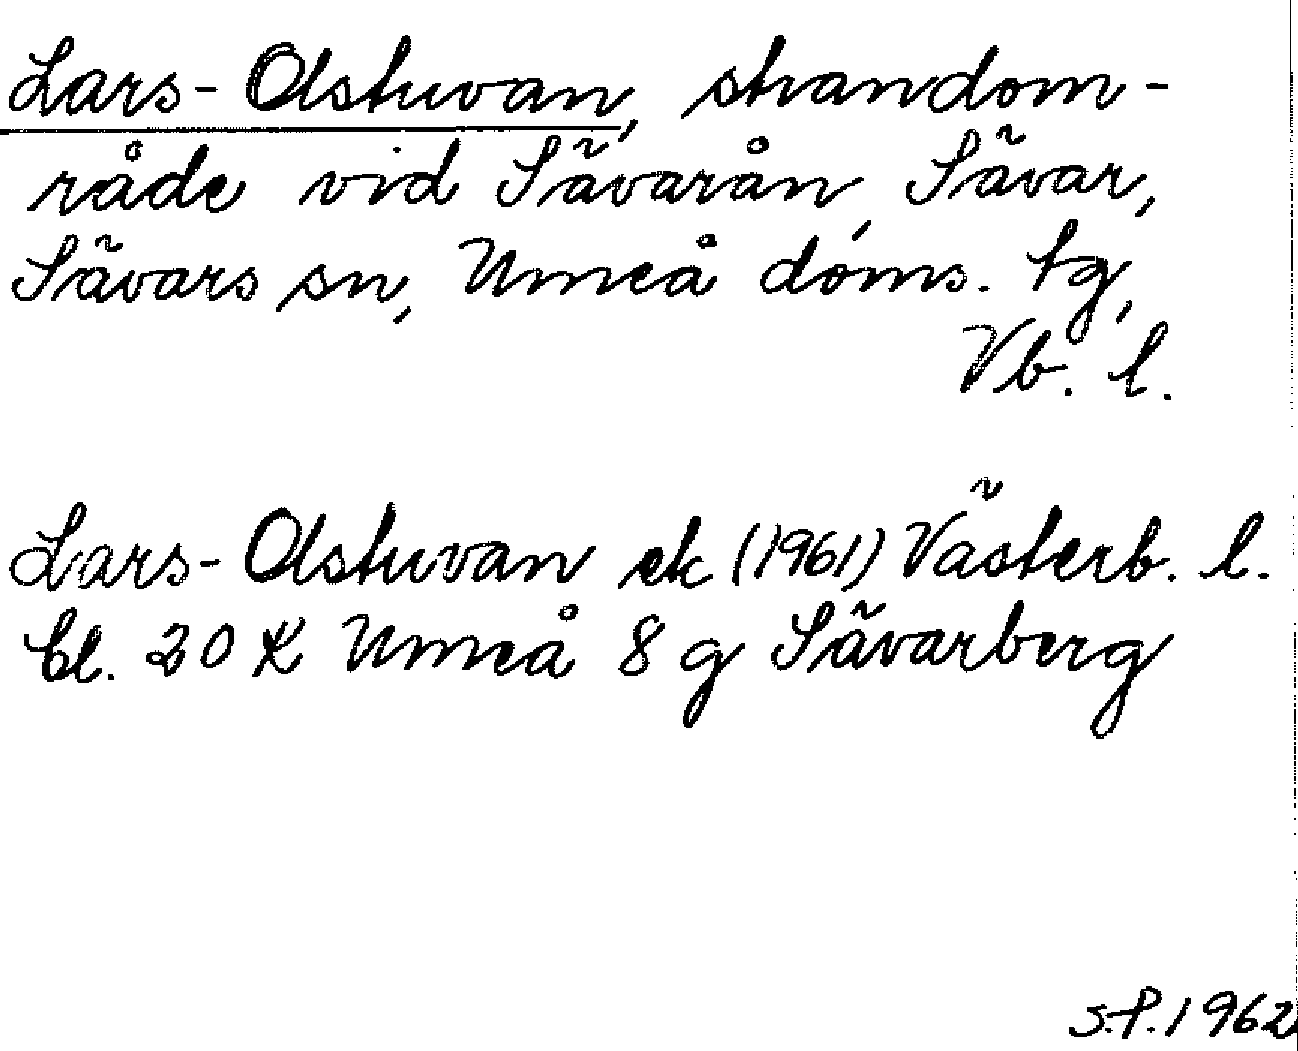 Lars-Olstuvan, strandom-
råde vid Sävarån, Sävar,
Sävars sn, Umeå doms. tg,
Vb. l.
Lars-Olstuvan ek (1961) Västerb. l.
bl. 20 K Umeå 8 g Sävarberg
S.P. 1962